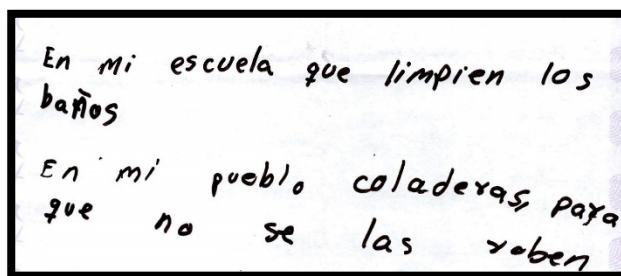 En mi escuela que limpien los
baños
En mi pueblo coladeras, para
que no se las roben